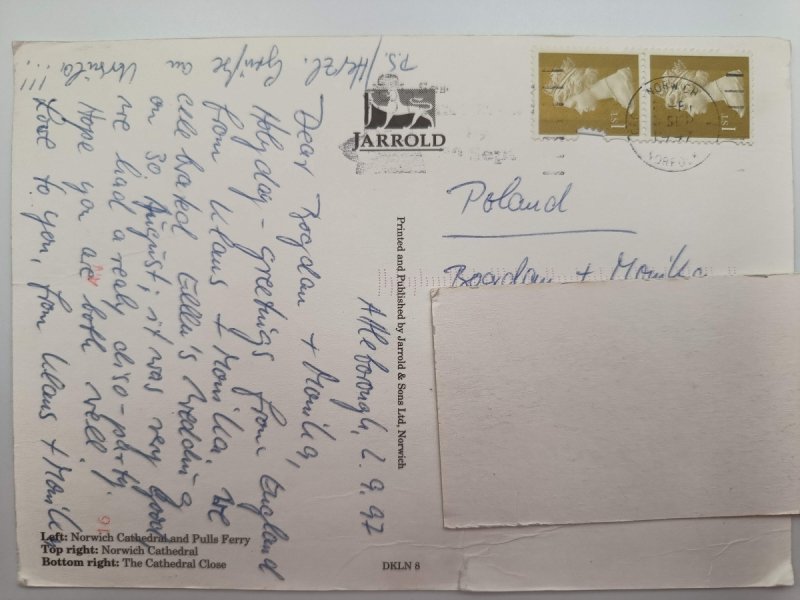 Attleborough, 2.9.97
Dear Bogdan + Monika,
Holyday - Greetings from England
from Klaus + Monika. We
celebrated Ellen's Wedding
on 30. August; it was very good
we had a realy disco-party.
Hope you are both well!
Love to you, from Klaus + Monika
P.S./Herzl. Grüße an
Ursula!!!
JARROLD
Printed and Published by Jarrold & Sons Ltd, Norwich
1ST
1ST
NORWICH
NORFOLK
Poland
Bogdan + Monika
Left: Norwich Cathedral and Pulls Ferry
Top right: Norwich Cathedral
Bottom right: The Cathedral Close
DKLN 8